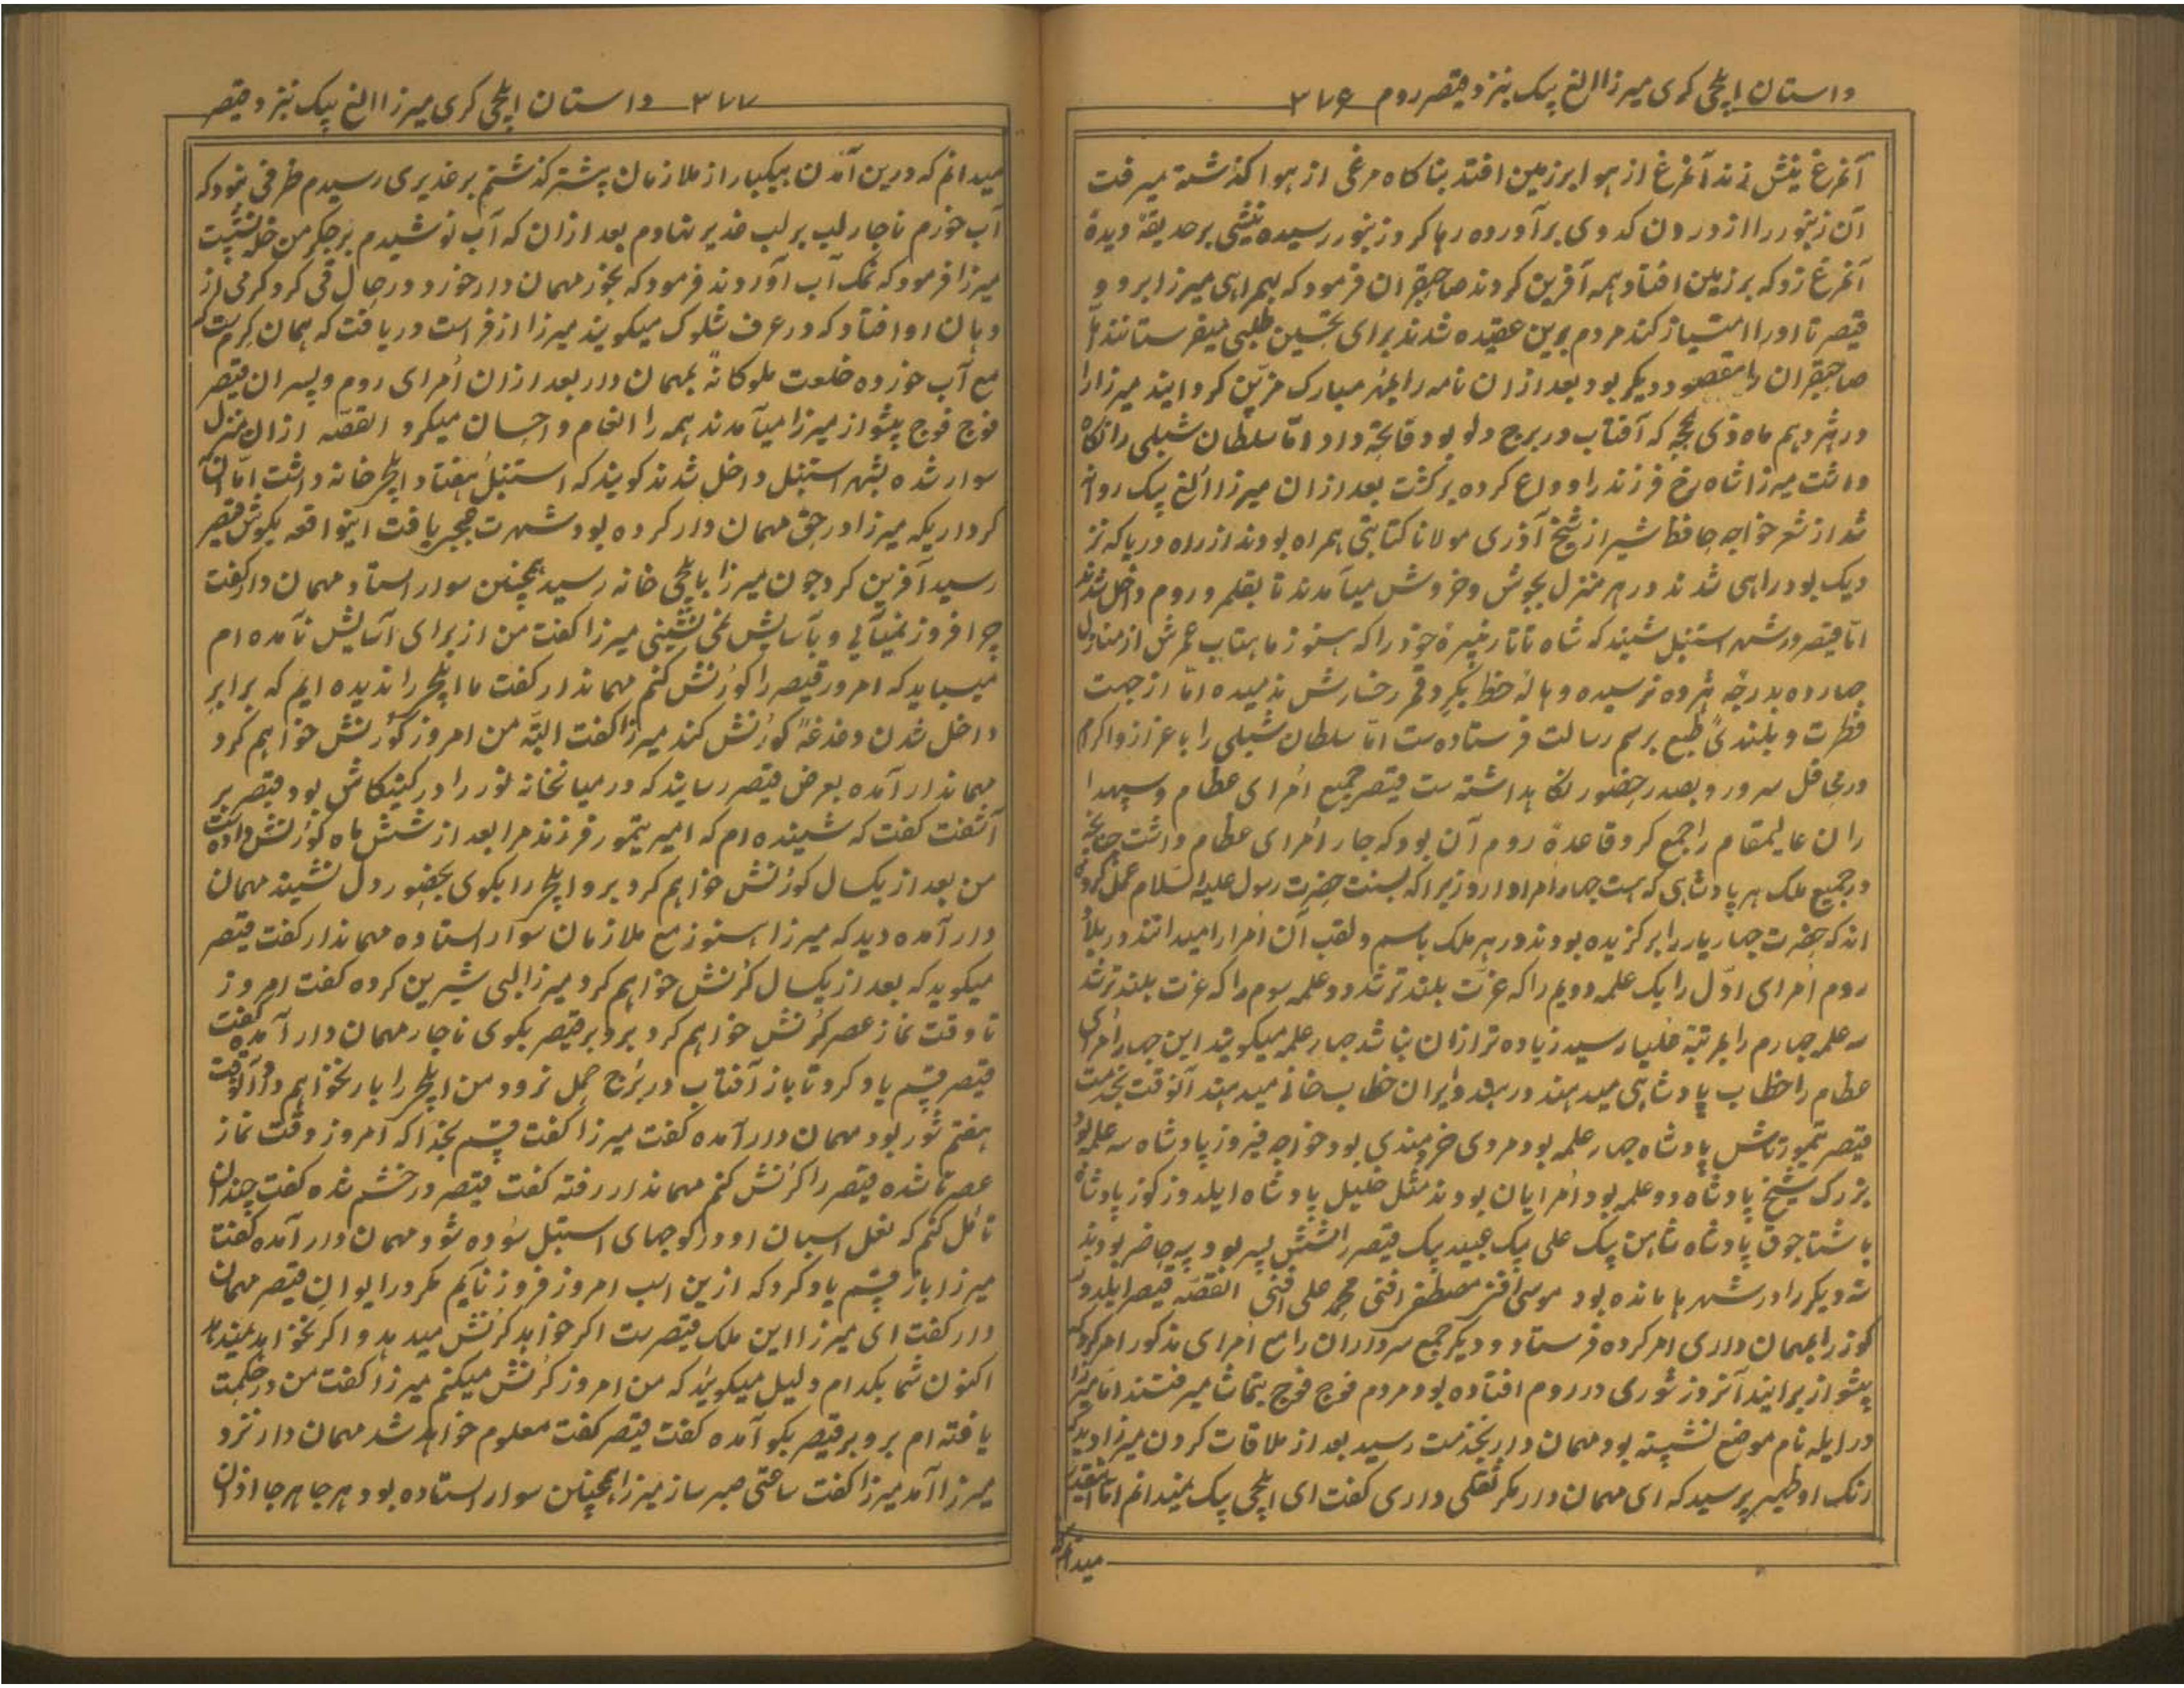 داستان ایلچی کری میرزا الغ بیک بنزد قیصر روم ۳۷۶
آنمرغ نیش زند آنمرغ از هوا بر زمین افتد بناکاه مرغی از هوا کذشته میرفت
آن زنبور را از درون کدوی برآورده رها کرد زنبور رسیده نیشی بر حدیقهٔ دیدهٔ
آنمرغ زد که بر زمین افتاد همه آفرین کردند صاحبقران فرمود که بهمراهی میرزا برو و
قیصر تا او را امتیاز کند مردم برین عقیده شدند برای تحسین طلبی میفرستانند اما
صاحبقران را مقصود دیکر بود بعد ازان نامه را بمهر مبارک مزین کردانید میرزا را
در هژدهم ماه ذی حجه که آفتاب در برج دلو بود فاتحه داد اما سلطان شبلی را نکاه
داشت میرزا شاه رخ فرزند را وداع کرده برکشت بعد ازان میرزا الغ بیک روانه
شد از شعر خواجه حافظ شیراز شیخ آذری مولانا کتابتی همراه بودند از راه دریا که نز
دیک بود راهی شدند در هر منزل بجوش و خروش میآمدند تا بقلمرو روم داخل شدند
اما قیصر در شهر استنبل شنید که شاه تاتار نبیرهٔ خود را که هنوز ماهتاب عمرش از منازل
چهارده بدرجهٔ هژده نرسیده و هالهٔ خط بکرد قمر رخسارش ندمیده اما از جهت
فطرت و بلندیٔ طبع برسم رسالت فرستاده ست اما سلطان شبلی را با عزاز و اکرام
در محافل سرور و بصدر حضور نکاهداشته ست قیصر جمیع امرای عظام و سپهدا
ران عالیمقام را جمع کرد قاعدهٔ روم آن بود که چار امرای عظام داشت چنانچه
در جمیع ملک هر پادشاهی که هست چهار امرا دارد زیرا که بسنت حضرت رسول علیه السلام عمل کرده
اند که حضرت چهار یار را برکزیده بودند در هر ملک باسم و لقب آن امرا را میدانند در بلاد
روم امرای اول را یک علمه دویم را که عزت بلندتر شد دو علمه سوم را که عزت بلندتر شد
سه علمه چهارم را بمرتبهٔ خلیا رسید زیاده تر ازان نباشد چهار علمه میکویند این چهار امرای
عظام را خطاب پادشاهی میدهند در هند و ایران خطاب خانی میدهند آنوقت بخدمت
قیصر تیمورتاش پادشاه چهار علمه بود مردی خردمندی بود خواجه فیروز پادشاه سه علمه بود
بزرک شیخ پادشاه دو علمه بود امرایان بودند مثل خلیل پادشاه ایلدوز کوز پادشاه
پاشتاجوق پادشاه شاهین بیک علی بیک عبید بیک قیصر را شش پسر بود سه حاضر بودند
سه دیکر را در شهرها مانده بود موسی افنی مصطفی افنی محمد علی افنی القصه قیصر ایلدوز
کوز را بمهمان داری امر کرده فرستاد و دیکر جمیع سرداران را مع امرای مذکور امر کرد که
پیشواز برایند آنروز شوری در روم افتاده بود مردم فوج فوج بتماشا میرفتند اما میرزا
در ایله نام موضع نشسته بود مهمان دار بخدمت رسید بعد از ملاقات کردن میرزا دید که
رنک او ظهیر پرسید که ای مهمان دار مکر ثقلی داری کفت ای ایلچی بیک نمیدانم اما اینقدر
میدانم
۳۷۷ داستان ایلچی کری میرزا الغ بیک بنزد قیصر
میدانم که درین آمدن بیکبار از ملازمان پیشتر کذشتم بر غدیری رسیدم ظرفی نبود که
آب خورم ناچار لب بر لب غدیر نهادم بعد ازان که آب نوشیدم بر جکر من خله نشست
میرزا فرمود که نمک آب آوردند فرمود که بخور مهمان دار خورد در حال قی کرد کرمی از
دهان او افتاد که در عرف شلوک میکویند میرزا از فراست دریافت که همان کرم ست که
مع آب خورده خلعت ملوکانه بمهمان دار بعد ازان امرای روم و پسران قیصر
فوج فوج پیشواز میرزا میآمدند همه را انعام و احسان میکرد القصه ازان منزل
سوار شده بشهر استنبل داخل شدند کویند که استنبل هفتاد ایلچی خانه داشت اما آن
کرداریکه میرزا در حق مهمان دار کرده بود شهرت عجب یافت اینواقعه بکوش قیصر
رسید آفرین کرد چون میرزا بایلچی خانه رسید همچنین سوار استاد مهمان دار کفت
چرا فروز نمیآئی و بآسایش نمی نشینی میرزا کفت من از برای آسایش نآمده ام
میباید که امروز قیصر را کورنش کنم مهماندار کفت ما ایلچی را ندیده ایم که برابر
داخل شدن دغدغهٔ کورنش کند میرزا کفت البته من امروز کورنش خواهم کرد
مهماندار آمده بعرض قیصر رسانید که در میانخانه تور را در کنکاش بود قیصر بر
آشفت کفت که شنیده ام که امیر تیمور فرزند مرا بعد از شش ماه کورنش داده است
من بعد از یکسال کورنش خواهم کرد برو ایلچی را بکوی بحضور دل نشیند مهمان
دار آمده دید که میرزا هنوز مع ملازمان سوار استاده مهماندار کفت قیصر
میکوید که بعد از یکسال کرنش خواهم کرد میرزا لبی شیرین کرده کفت امروز
تا وقت نماز عصر کرنش خواهم کرد برو بر قیصر بکوی ناچار مهمان دار آمده کفت
قیصر قسم یاد کرد تا باز آفتاب در برج حمل نرود من ایلچی را بار نخواهم داد آنوقت
هفتم ثور بود مهمان دار آمده کفت میرزا کفت قسم بخدا که امروز وقت نماز
عصر نا شده قیصر را کرنش کنم مهماندار رفته کفت قیصر در خشم شده کفت چندان
تامل کنم که نعل اسبان او در کوچهای استنبل سوده شود مهمان دار آمده کفت
میرزا باز قسم یاد کرد که ازین اسب امروز فروز نآیم مکر در ایوان قیصر مهمان
دار کفت ای میرزا این ملک قیصر ست اکر خواهد کرنش میدهد و اکر نخواهد نمیدهد
اکنون شما بکدام دلیل میکویید که من امروز کرنش میکنم میرزا کفت من در حکمت
یافته ام برو بر قیصر بکو آمده کفت قیصر کفت معلوم خواهد شد مهمان دار نزد
میرزا آمد میرزا کفت ساعتی صبر ساز میرزا همچنین سوار استاده بود هر جا هر جا اذان